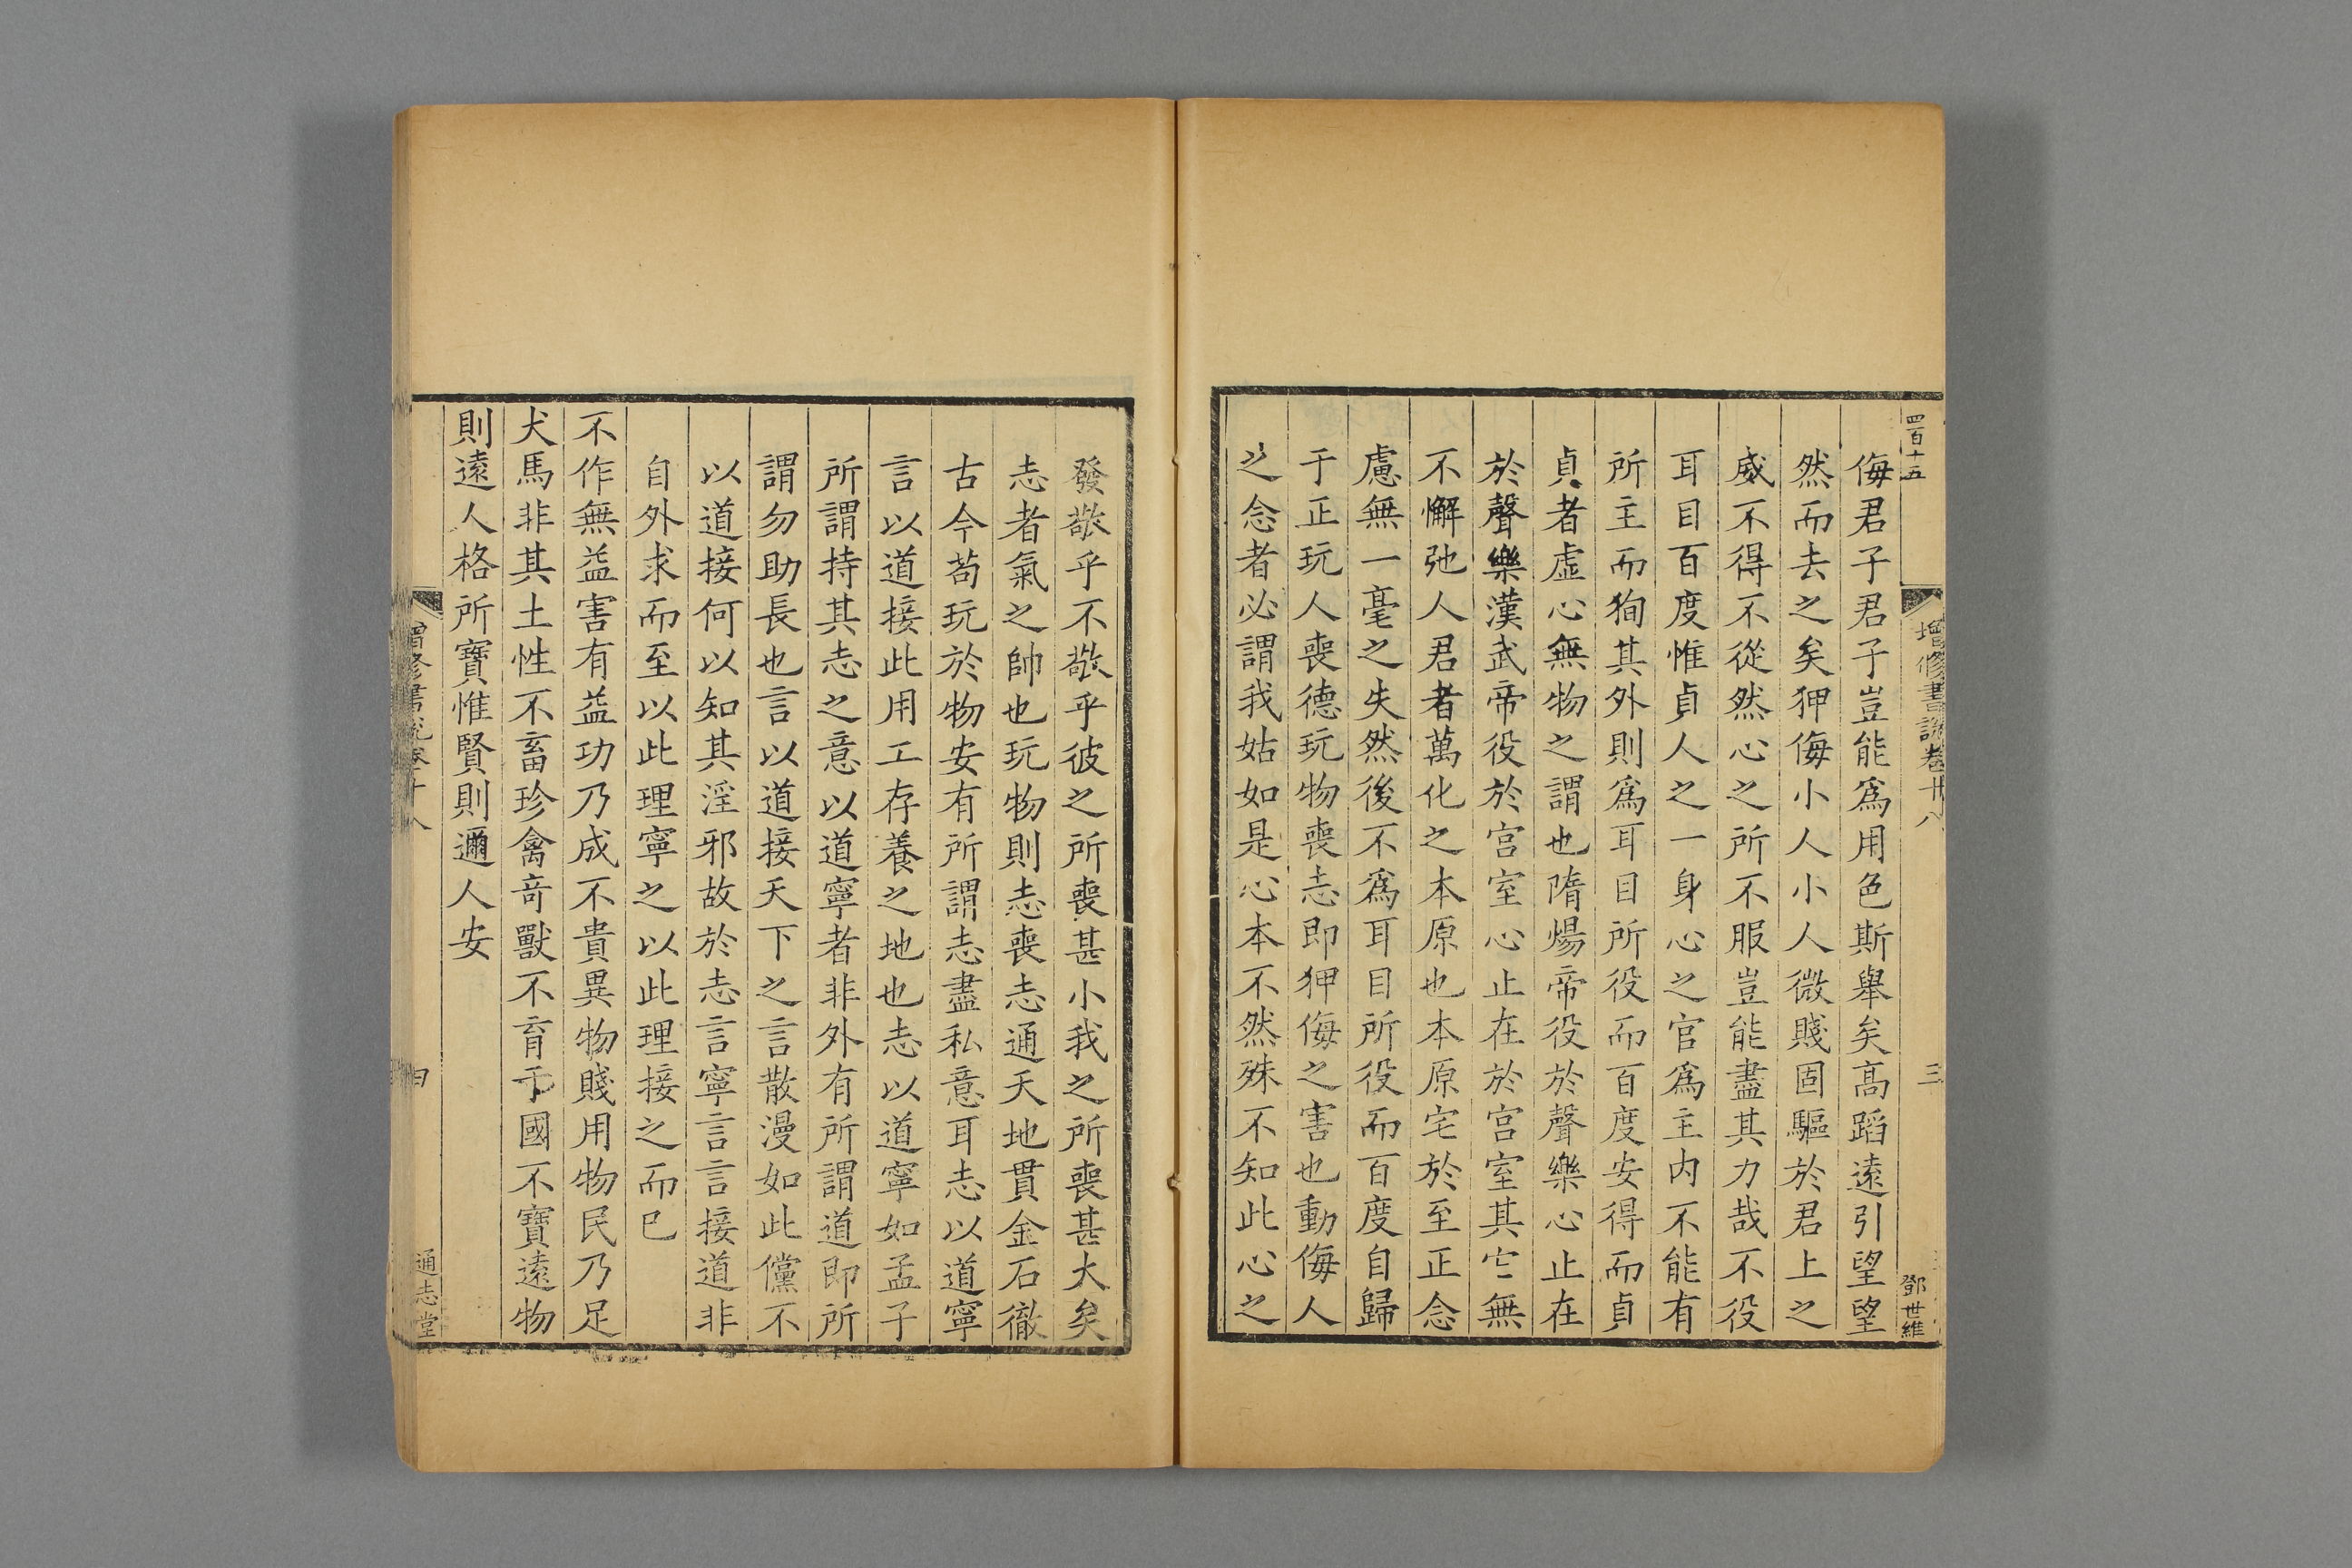 四百十五
增修書說卷廿八
三
鄧世維
侮君子君子豈能爲用色斯舉矣髙蹈遠引望望
然而去之矣狎侮小人小人微賤固驅於君上之
威不得不從然心之所不服豈能盡其力哉不役
耳目百度惟貞人之一身心之官爲主内不能有
所主而狥其外則爲耳目所役而百度安得而貞
貞者虛心無物之謂也隋煬帝役於聲樂心止在
於聲樂漢武帝役於宫室心止在於宫室其它無
不懈弛人君者萬化之本原也本原宅於至正念
慮無一毫之失然後不爲耳目所役而百度自歸
于正玩人喪德玩物喪志即狎侮之害也動侮人
之念者必謂我姑如是心本不然殊不知此心之
發敬乎不敬乎彼之所喪甚小我之所喪甚大矣
志者氣之帥也玩物則志喪志通天地貫金石徹
古今苟玩於物安有所謂志盡私意耳志以道寧
言以道接此用工存養之地也志以道寧如孟子
所謂持其志之意以道寧者非外有所謂道即所
謂勿助長也言以道接天下之言散漫如此儻不
以道接何以知其淫邪故於志言寧言言接道非
自外求而至以此理寧之以此理接之而已
不作無益害有益功乃成不貴異物賤用物民乃足
犬馬非其土性不畜珍禽竒獸不育于國不寶遠物
則遠人格所寶惟賢則邇人安
增修書說卷廿八
四
通志堂